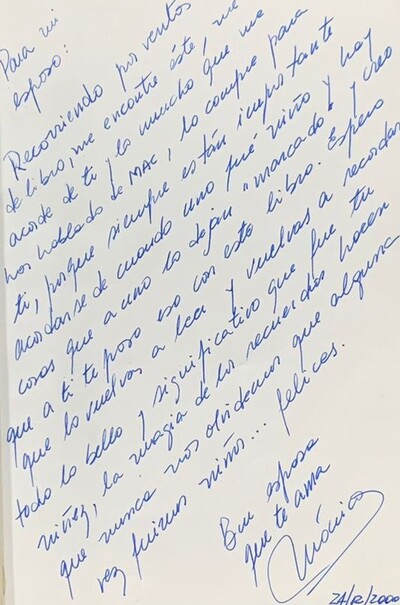 Para mi
esposo:
Recorriendo por ventos
de libro, me encontre éste, me
acorde de ti y lo mucho que me
has hablado de MAC, lo compre para
ti, porque siempre están importante
acordarse de cuando uno fué niño y hay
cosas que a uno lo dejan "marcado" y creo
que a ti te paso eso con este libro. Espero
que lo vuelvas a leer y vuelvas a recordar
todo lo bello y significativo que fue tu
niñez, la magia de los recuerdos hacen
que nunca nos olvidemos que alguna
vez fuimos niños... felices.
Bun esposa
que te ama
Mónica
24/12/2000